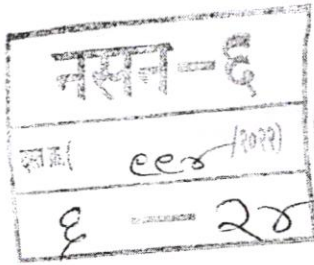 नसन-६
दस्त क्र.( ९९४ /२०२२)
६ - २४